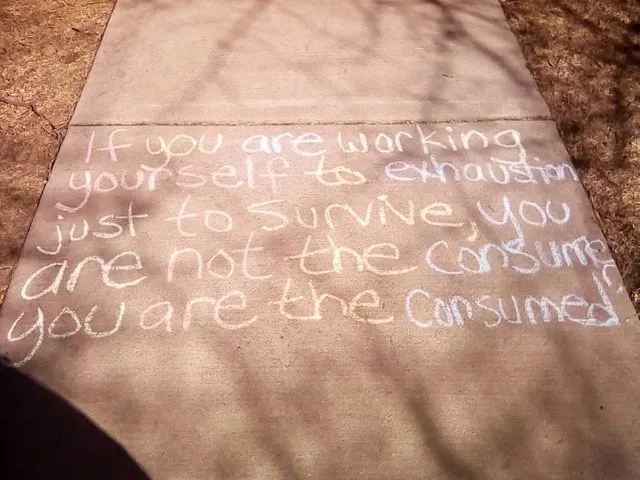 If you are working
yourself to exhaustion
just to survive, you
are not the consumer,
you are the consumed